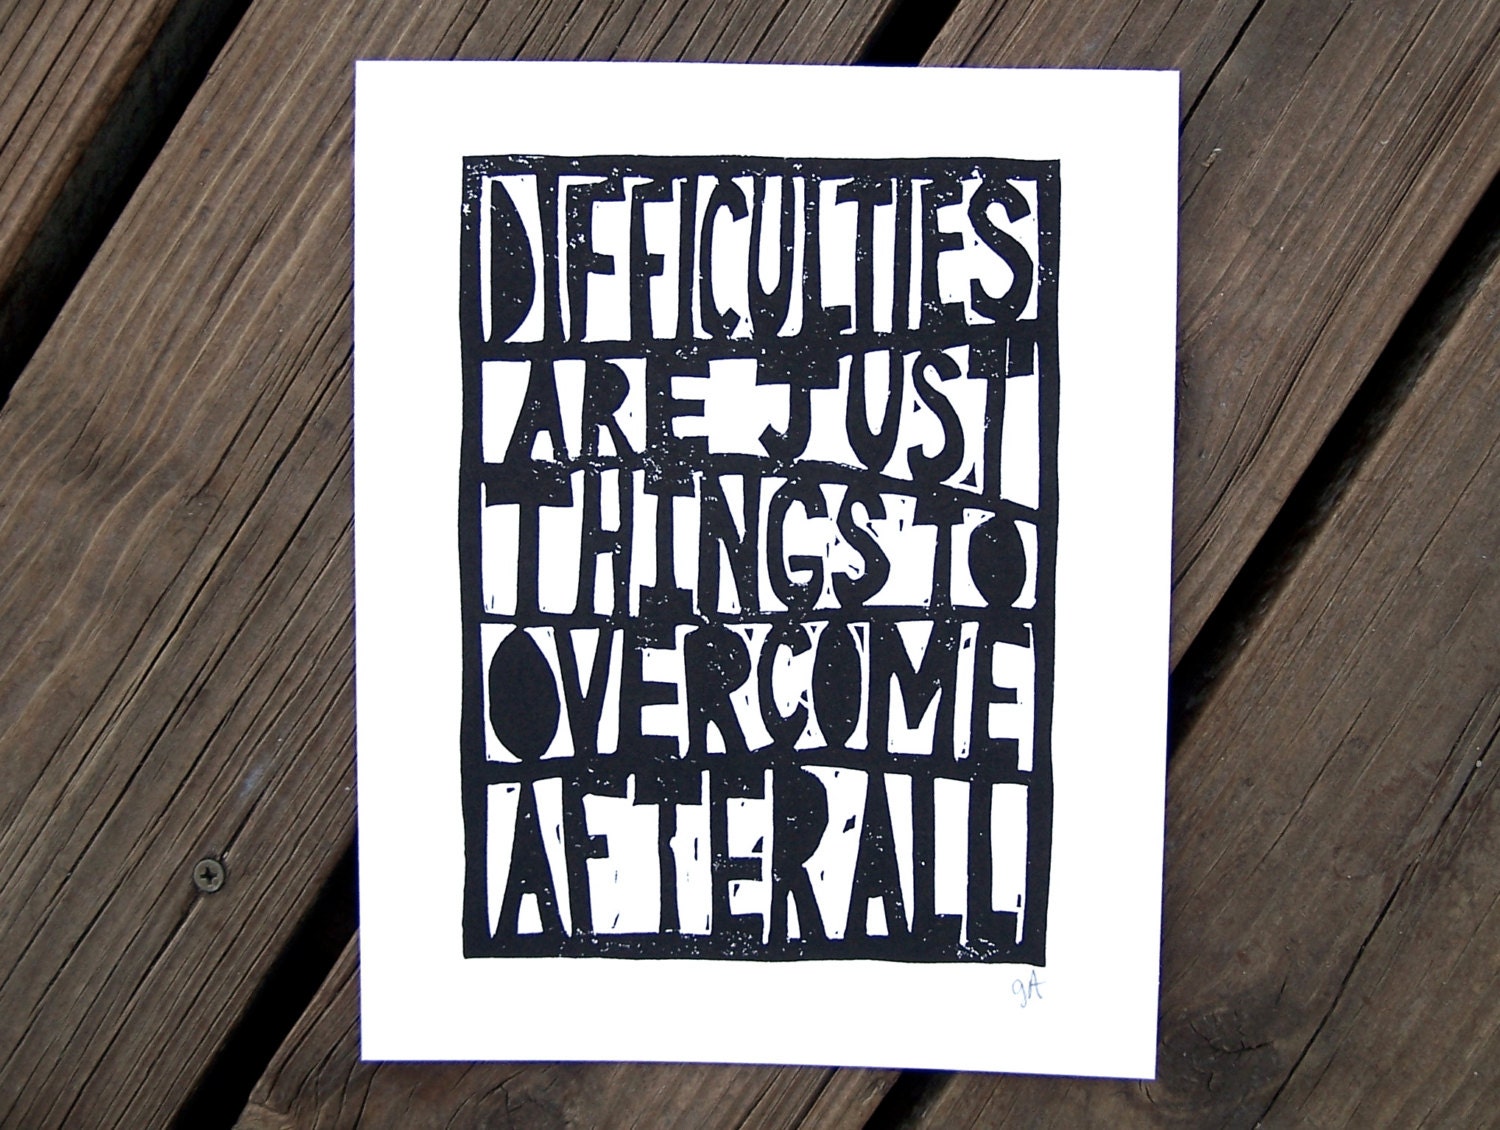 DIFFICULTIES
ARE JUST
THINGS TO
OVERCOME
AFTER ALL
gA